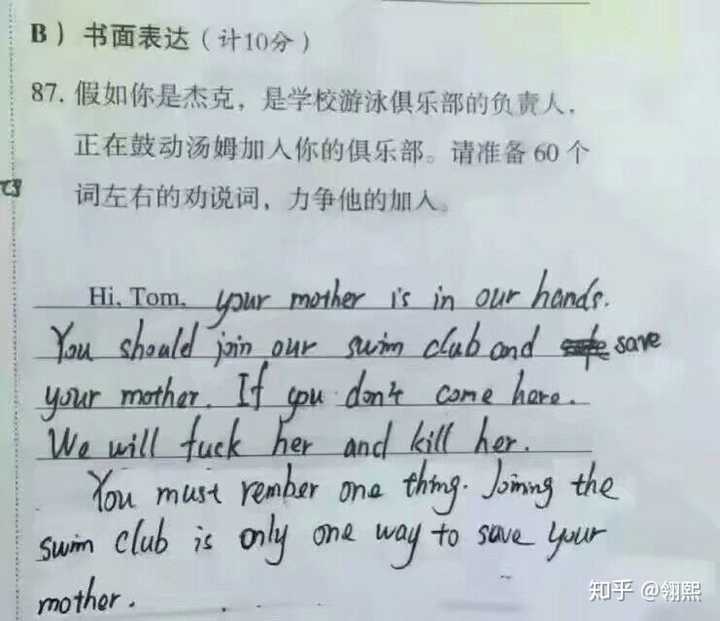 B）书面表达（计10分）
87. 假如你是杰克，是学校游泳俱乐部的负责人，
正在鼓动汤姆加入你的俱乐部。请准备 60 个
词左右的劝说词，力争他的加入。
Hi, Tom, your mother is in our hands.
You should join our swim club and save
your mother. If you don't come here.
We will fuck her and kill her.
You must rember one thing. Joining the
swim club is only one way to save your
mother.
知乎 @翎熙